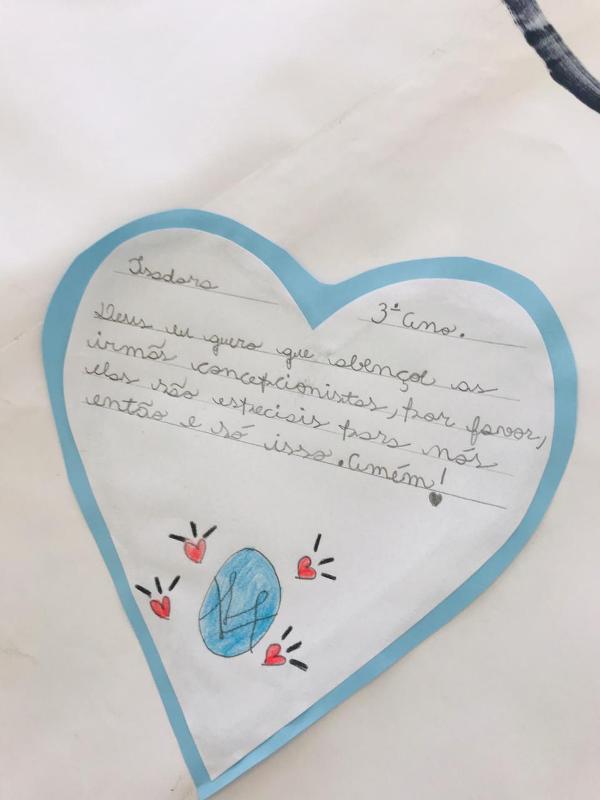 Isadora
3º ano.
Deus eu quero que abençoe as
irmãs concepcionistas, por favor,
elas são especiais para nós
então e só isso. Amém!